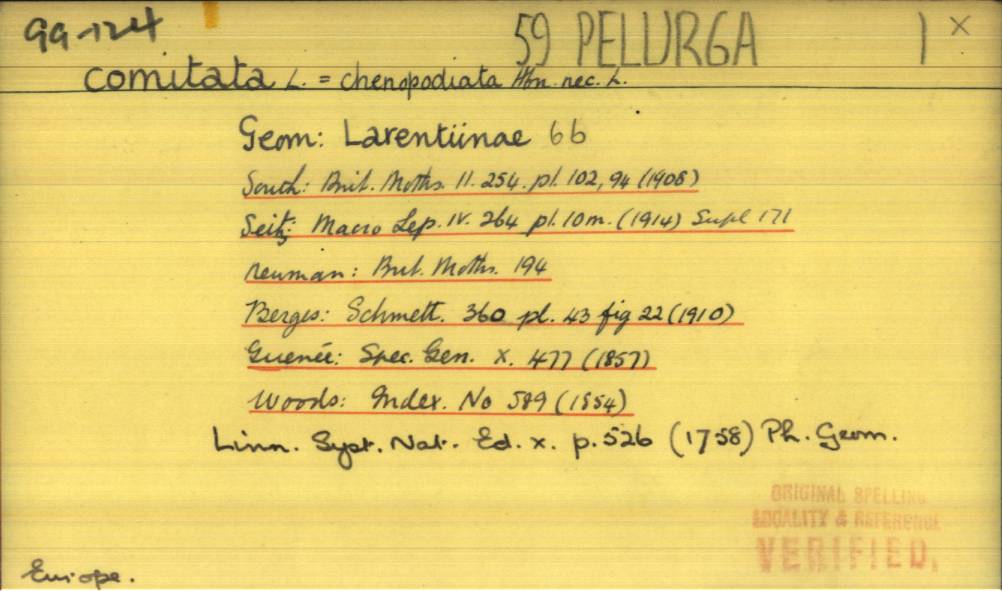 99-124
59 PELURGA 1 x
comitata L. = chenopodiata Hbn. nec. L.
Geom: Larentiinae 66
South: Brit. Moths. II. 254. pl. 102, 94 (1908)
Seitz: Macro Lep. IV. 264 pl. 10m. (1914) Supl 171
Newman: Brit. Moths. 194
Berges: Schmett. 360 pl. 43 fig 22 (1910)
Guenée: Spec. Gen. X. 477 (1857)
Woods: Index. No 589 (1854)
Linn. Syst. Nat. Ed. x. p. 526 (1758) Ph. Geom.
ORIGINAL SPELLING
LOCALITY & REFERENCE
VERIFIED.
Europe.